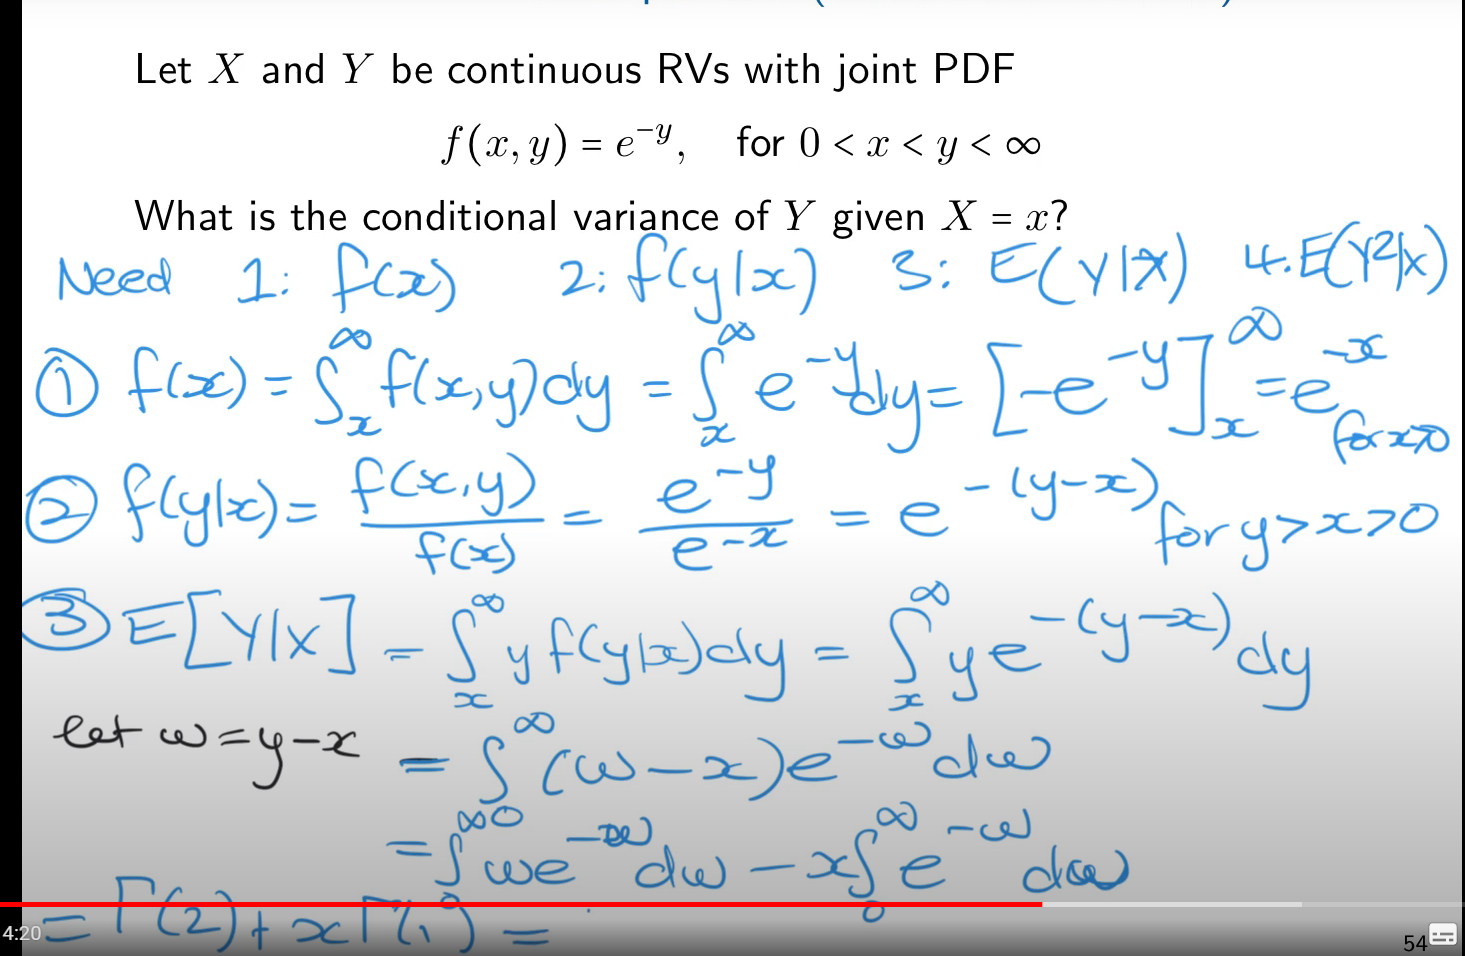 Let X and Y be continuous RVs with joint PDF
f(x, y) = e^{-y}, for 0 < x < y < ∞
What is the conditional variance of Y given X = x?
Need 1: f(x) 2: f(y|x) 3: E(Y|X) 4. E(Y²|x)
① f(x) = ∫_x^∞ f(x,y)dy = ∫_x^∞ e^{-y}dy = [-e^{-y}]_x^∞ = e^{-x} for x>0
② f(y|x) = f(x,y)/f(x) = e^{-y}/e^{-x} = e^{-(y-x)} for y>x>0
③ E[Y|X] = ∫_x^∞ y f(y|x)dy = ∫_x^∞ y e^{-(y-x)} dy
let w=y-x = ∫_0^∞ (w-x)e^{-w}dw
= ∫_0^∞ we^{-w}dw - x∫_0^∞ e^{-w}dw
= Γ(2)+xΓ(1) =
4:20
54